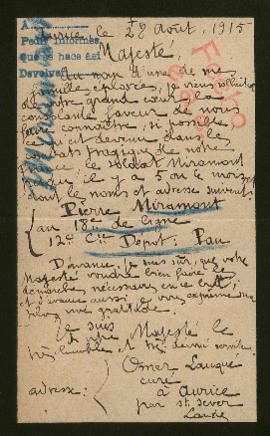 Aurice le 28 Août, 1915
Majesté,
Au nom d'une de mes
familles éplorées, je viens solliciter
de votre grand cœur la
consolante faveur de nous
faire connaître, si possible
ce qu'est devenu dans les
combats
le soldat Miramont
il y a 5 ou 6 mois
dont les noms et adresse suivent
Pierre Miramont
au 18e de ligne
12e Cie Dépot: Pau
D'avance je suis sûr, que votre
Majesté voudra bien faire les
démarches nécessaires en ce
et d'avance aussi je vous exprime ma
plus vive gratitude.
Je suis
de votre Majesté le
très humble et très dévoué serviteur.
Omer Lauque
curé
à Aurice
par St Sever
Landes
adresse: